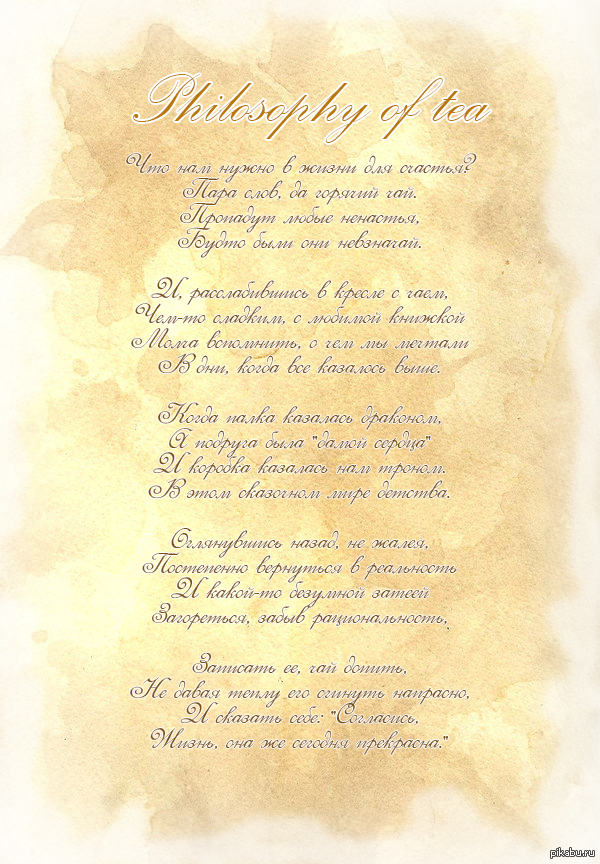 Philosophy of tea
Что нам нужно в жизни для счастья?
Пара слов, да горячий чай.
Пропадут любые ненастья,
Будто были они невзначай.
И, расслабившись в кресле с чаем,
Чем-то сладким, с любимой книжкой
Молча вспомнить, о чем мы мечтали
В дни, когда все казалось выше.
Когда палка казалась драконом,
А подруга была "дамой сердца"
И коробка казалась нам троном.
В этом сказочном мире детства.
Оглянувшись назад, не жалея,
Постепенно вернуться в реальность
И какой-то безумной затеей
Загореться, забыв рациональность,
Записать ее, чай допить,
Не давая теплу его сгинуть напрасно,
И сказать себе: "Согласись,
Жизнь, она же сегодня прекрасна."
pikabu.ru